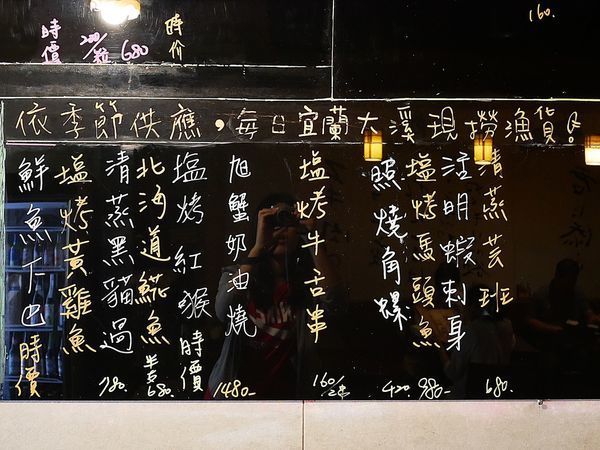 160.
時价
680
200/粒
時價
依季節供應，每日宜蘭大溪現撈漁貨。
清蒸芸班 680.
注明蝦刺身
塩烤馬頭魚 980-
照燒角螺 420.
塩烤牛舌串 160/2串
旭蟹奶油燒 1480-
塩烤紅猴 時價
北海道𩸽魚 半支680.
清蒸黑貓過 780.
塩烤黃雞魚
鮮魚丁巴 時價